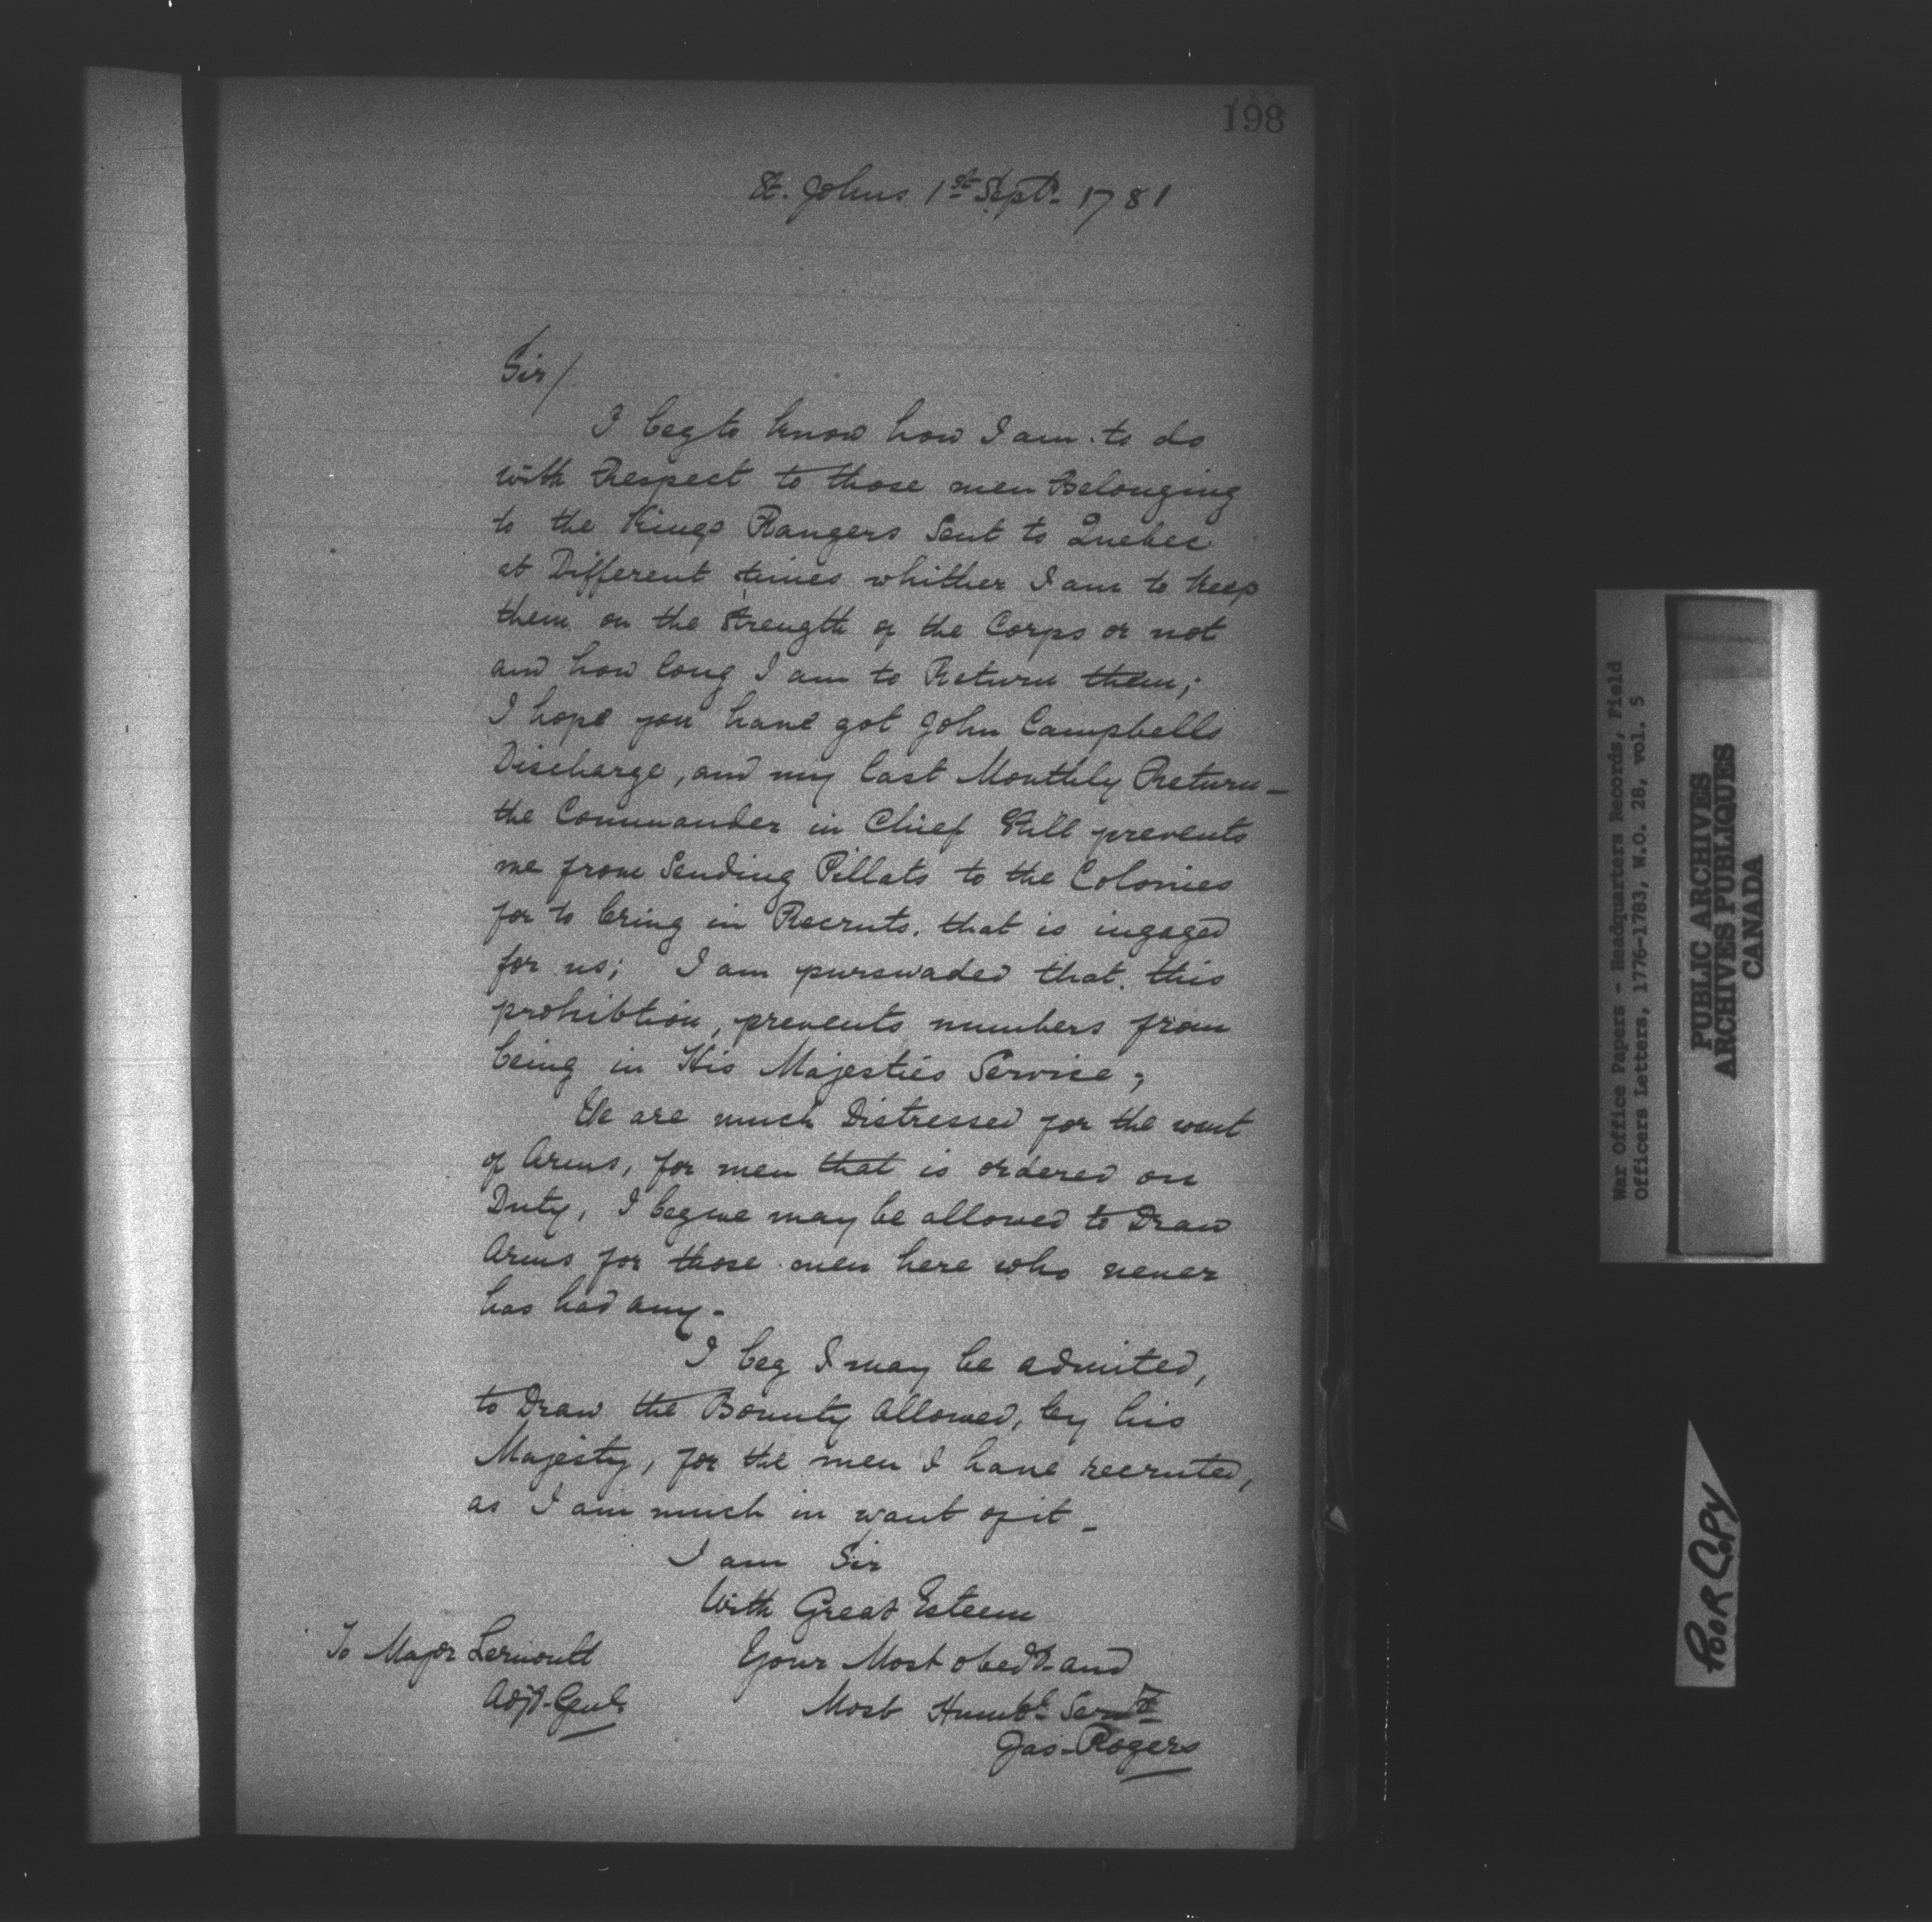 198
St. Johns 1st Sept. 1781
Sir/
I beg to know how I am to do
with Respect to those men Belonging
to the Kings Rangers Sent to Quebec
at Different times whither I am to keep
them on the Strength of the Corps or not
and how long I am to Return them;
I hope you have got John Campbells
Discharge, and my last Monthly Return -
the Commander in Chief Still prevents
me from Sending Pillats to the Colonies
for to bring in Recruts. that is ingaged
for us; I am purswaded that this
prohibtion, prevents numbers from
being in His Majesties Service;
We are much Distressed for the want
of Arms, for men that is ordered on
Duty, I beg we may be allowed to Draw
Arms for those men here who never
has had any -
I beg I may be admited,
to Draw the Bounty allowed, by his
Majesty, for the men I have recruted,
as I am much in want of it -
I am Sir
With Great Esteem
Your Most obedt and
Most Humble Servt
Jas. Rogers
To Major Lernoult
Adjt. Genl.
War Office Papers - Headquarters Records, Field
Officers Letters, 1776-1783, W.O. 28, vol. 5
PUBLIC ARCHIVES
ARCHIVES PUBLIQUES
CANADA
POOR COPY